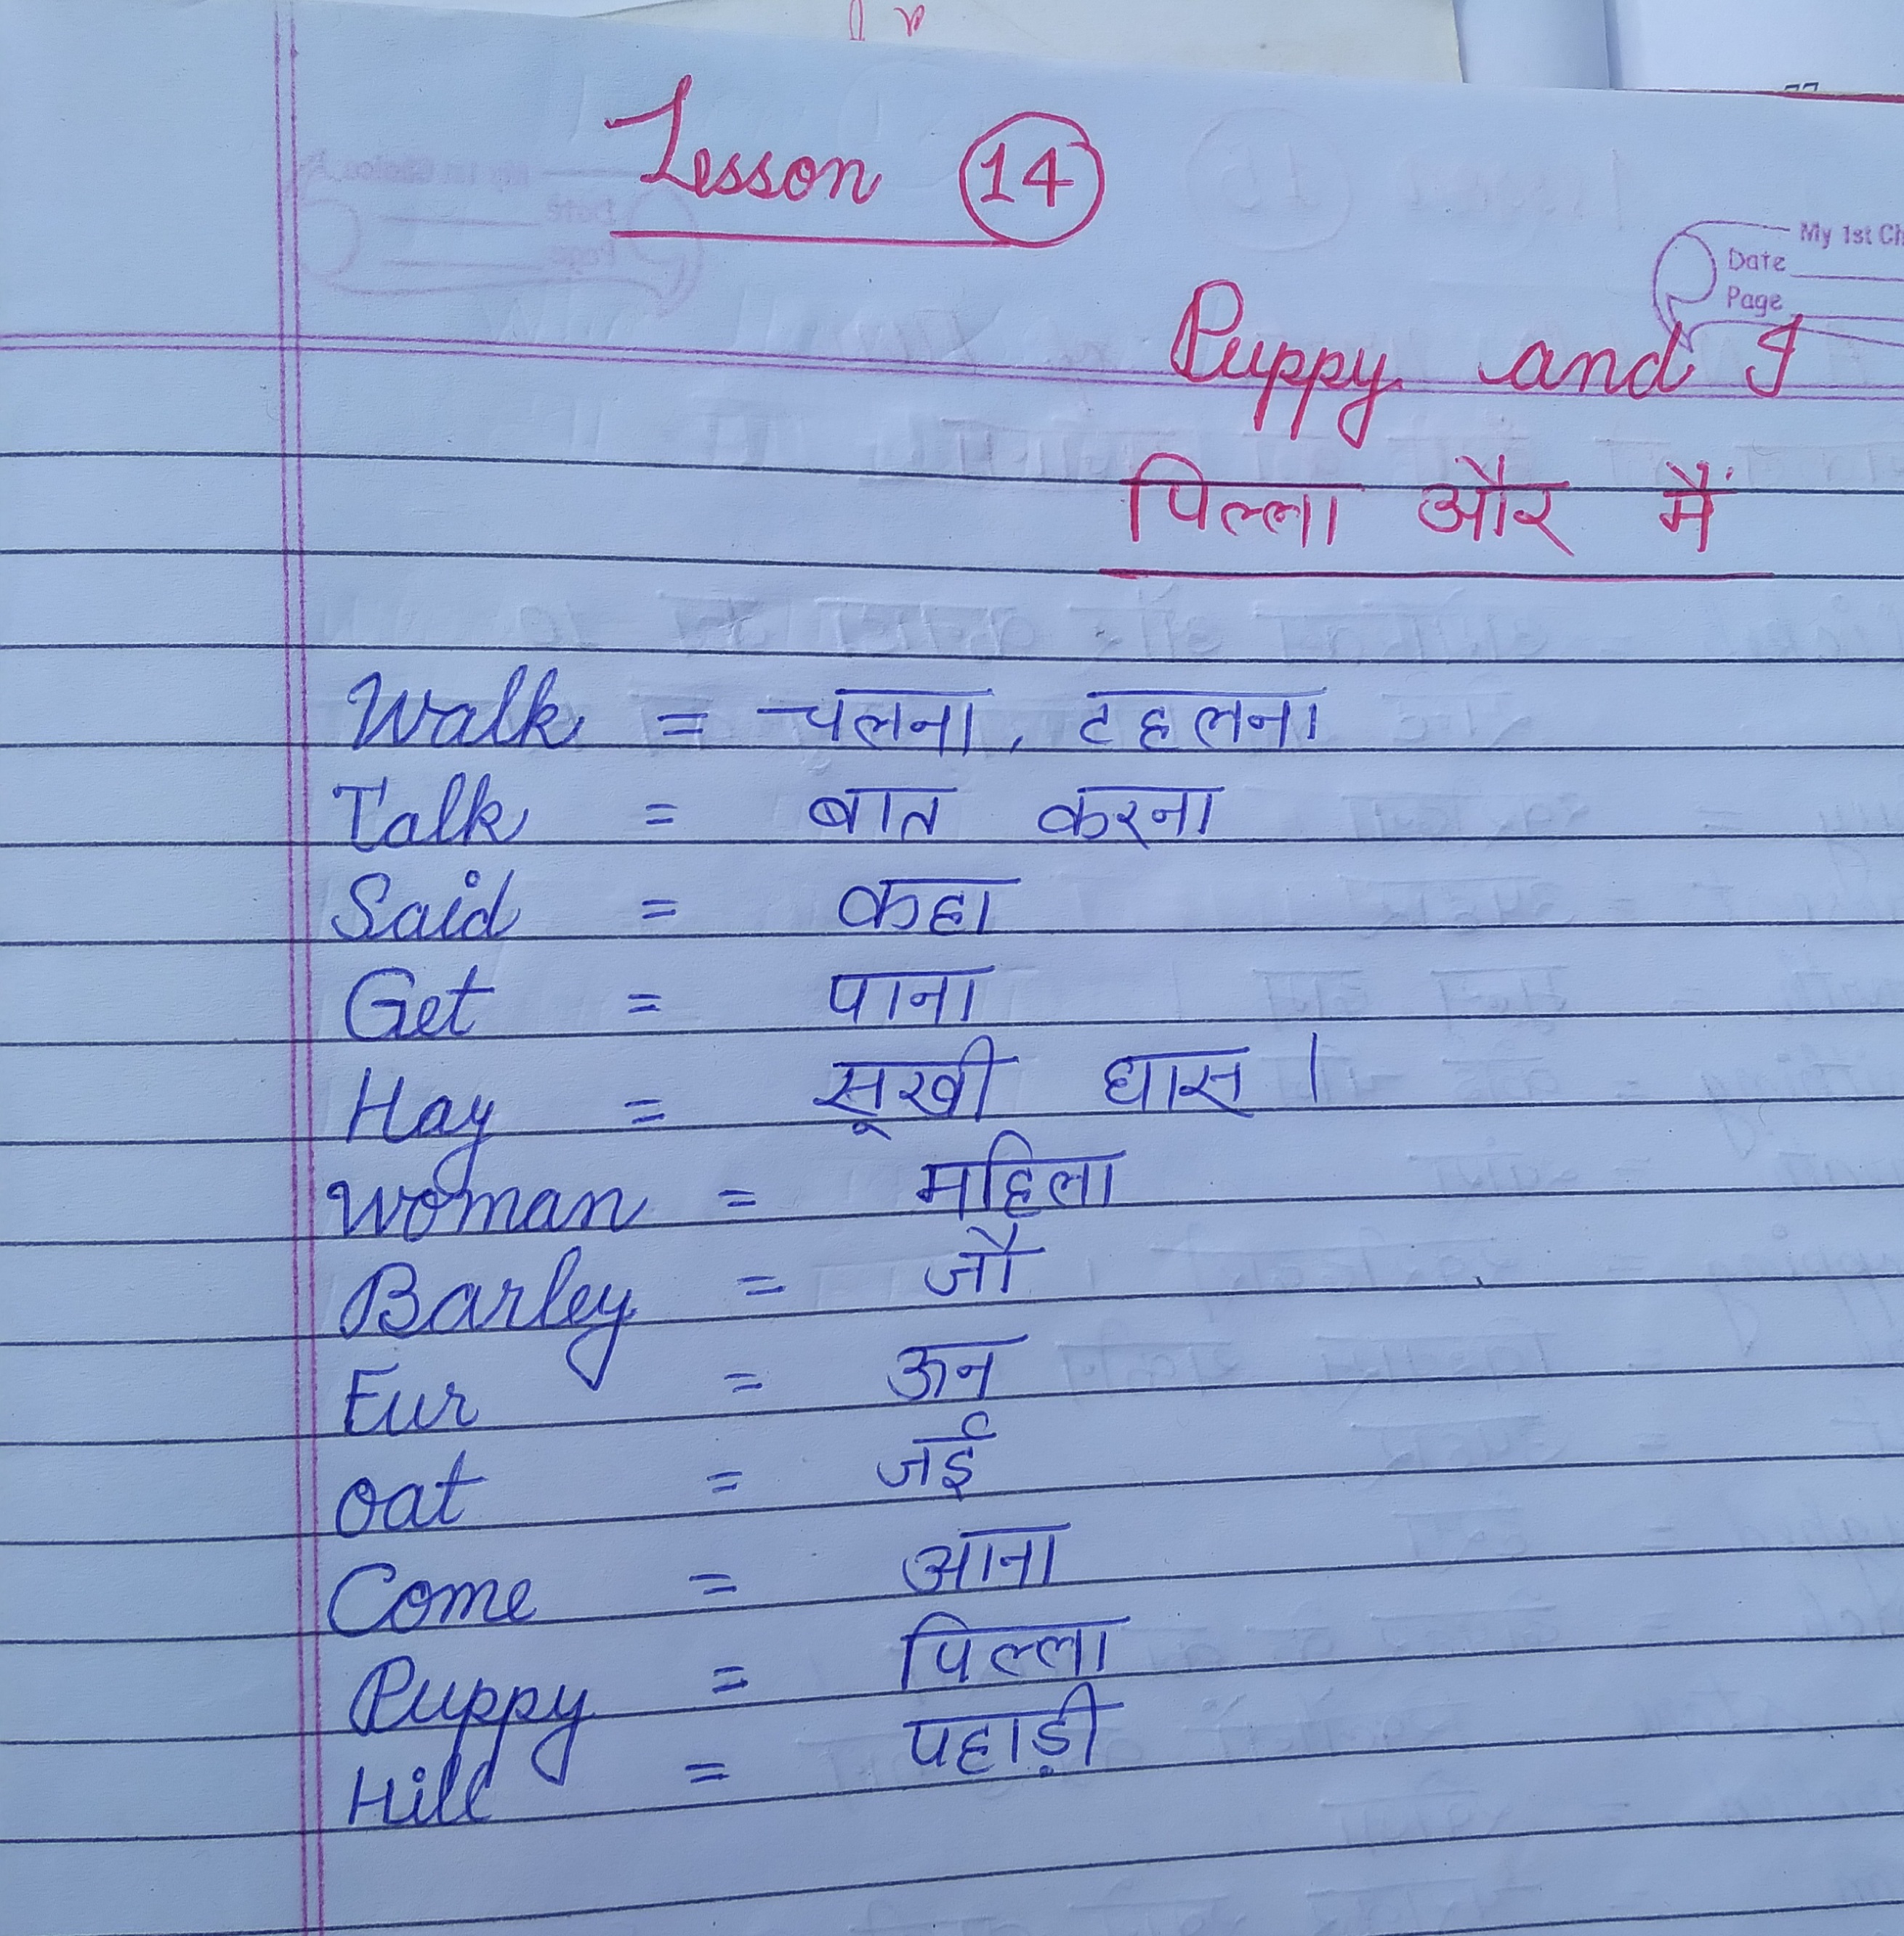 Lesson 14
My 1st Ch
Date
Page
Puppy and I
पिल्ला और मैं
Walk = चलना, टहलना
Talk = बात करना
Said = कहा
Get = पाना
Hay = सूखी घास ।
Woman = महिला
Barley = जौ
Fur = ऊन
oat = जई
Come = आना
Puppy = पिल्ला
Hill = पहाड़ी